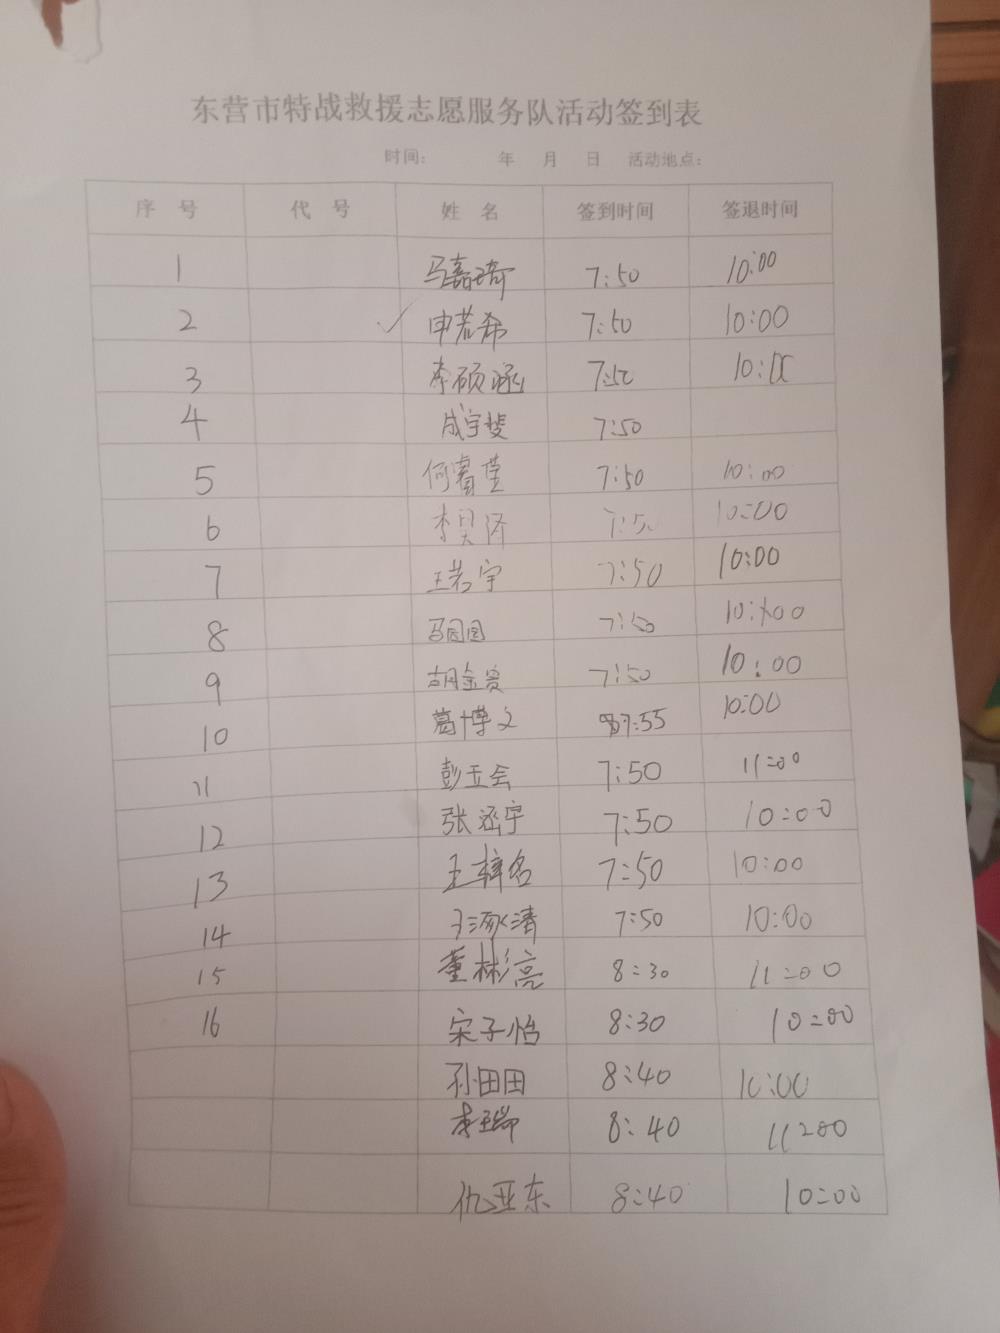 东营市特战救援志愿服务队活动签到表
时间： 年 月 日 活动地点：
序 号 代 号 姓 名 签到时间 签退时间
1 马嘉琦 7:50 10:00
2 ✓ 申若希 7:50 10:00
3 李硕涵 7:50 10:00
4 成宇斐 7:50
5 何睿莹 7:50 10:00
6 李昊泽 7:50 10:00
7 王若宇 7:50 10:00
8 马园圆 7:50 10:00
9 胡金贵 7:50 10:00
10 葛博文 7:55 10:00
11 彭玉会 7:50 11:00
12 张涵宇 7:50 10:00
13 王梓名 7:50 10:00
14 7:50 10:00
15 董彬亮 8:30 11:00
16 宋子怡 8:30 10:00
孙田田 8:40 10:00
李瑞 8:40 11:00
仇亚东 8:40 10:00